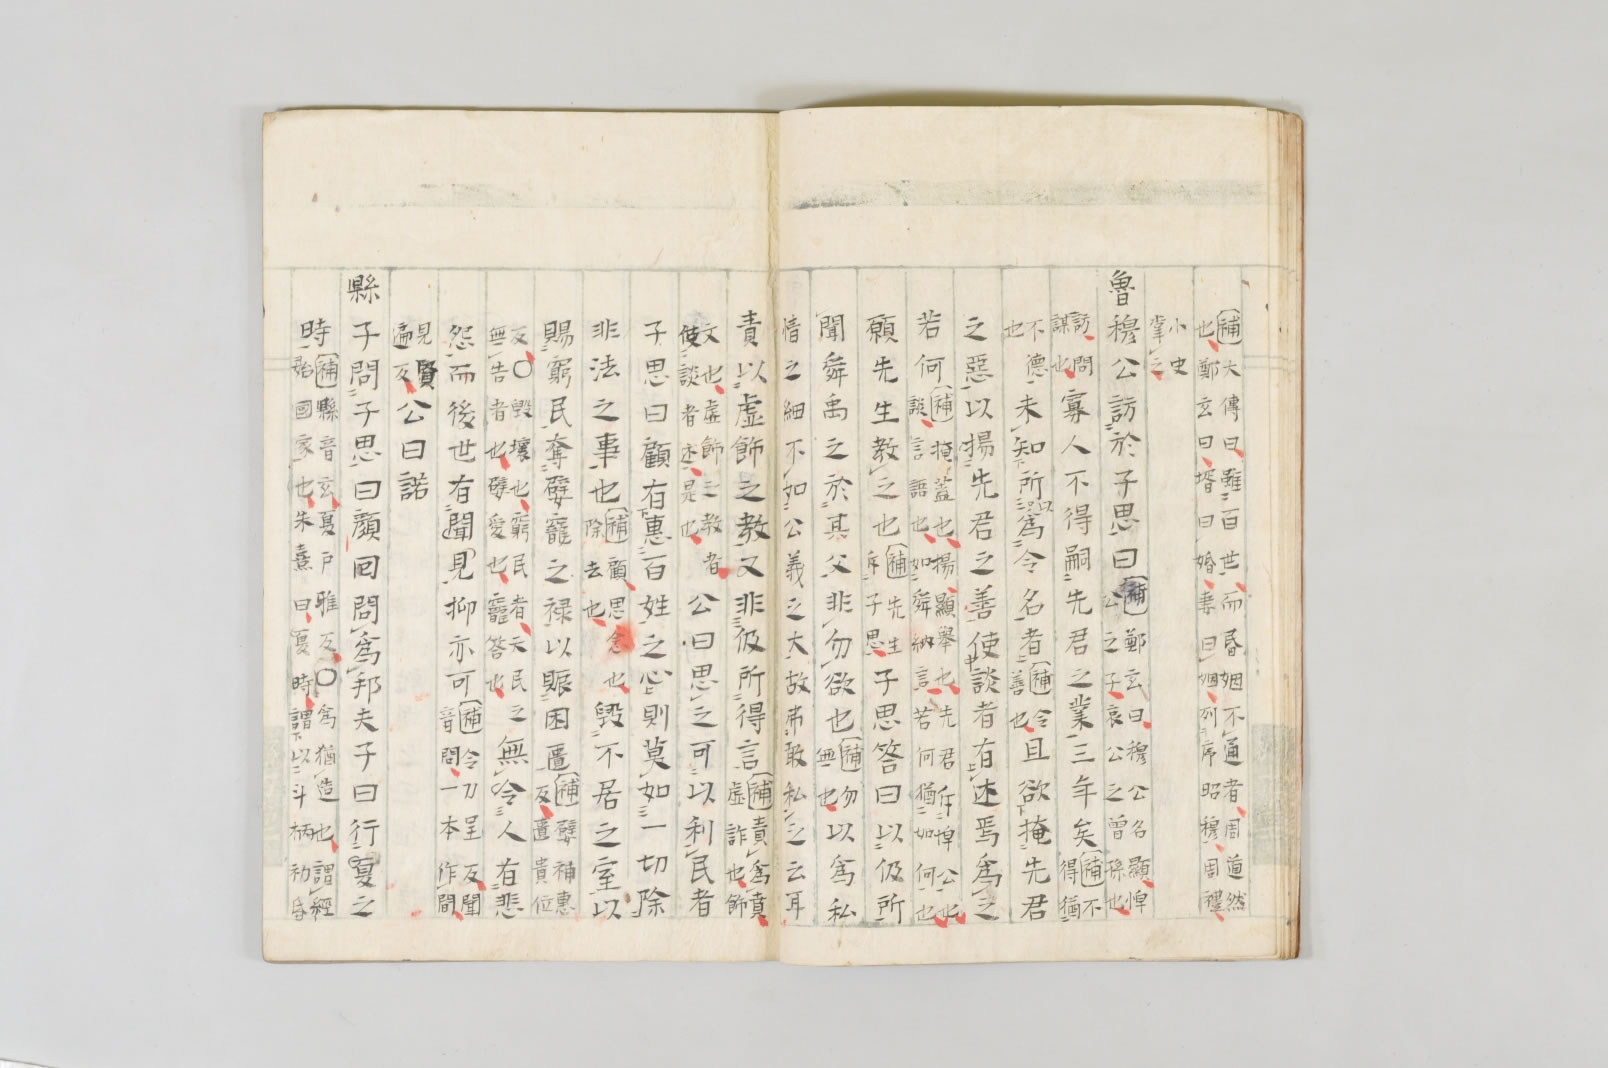 補大傳曰雖百世而昏姻不通者周道然
也鄭玄曰壻曰婚妻曰姻列序昭穆周禮
小史
掌之
魯穆公訪於子思曰補鄭玄曰穆公名顯悼
公之子哀公之曾孫也
訪問
謀也寡人不得嗣先君之業三年矣補不
得猶
不德
也未知所以爲令名者補令
善也且欲掩先君
之惡以揚先君之善使談者有述焉爲之
若何補掩蓋也揚顯舉也先君斥悼公也
談言語也如舜納言若何猶如何也
願先生教之也補先生
斥子思子思答曰以伋所
聞舜禹之於其父非勿欲也補勿
無也以爲私
情之細不如公義之大故弗敢私之云耳
責以虛飾之教又非伋所得言補責爲賁
虛詐也飾
文也虛飾之教者
使談者述是也公曰思之可以利民者
子思曰顧有惠百姓之心則莫如一切除
非法之事也補顧思念也
除去也毀不居之室以
賜窮民奪嬖寵之祿以賑困匱補嬖神惠
反匱貴位
反○毀壞也窮民者天民之無
無告者也嬖愛也寵答也令人有悲
怨而後世有聞見抑亦可補令力呈反聞
音問一本作間
見賢
遍反公曰諾
縣子問子思曰顏回問爲邦夫子曰行夏之
時補縣音玄夏戶雅反○爲猶造也謂經
始國家也朱熹曰夏時謂以斗柄初昏